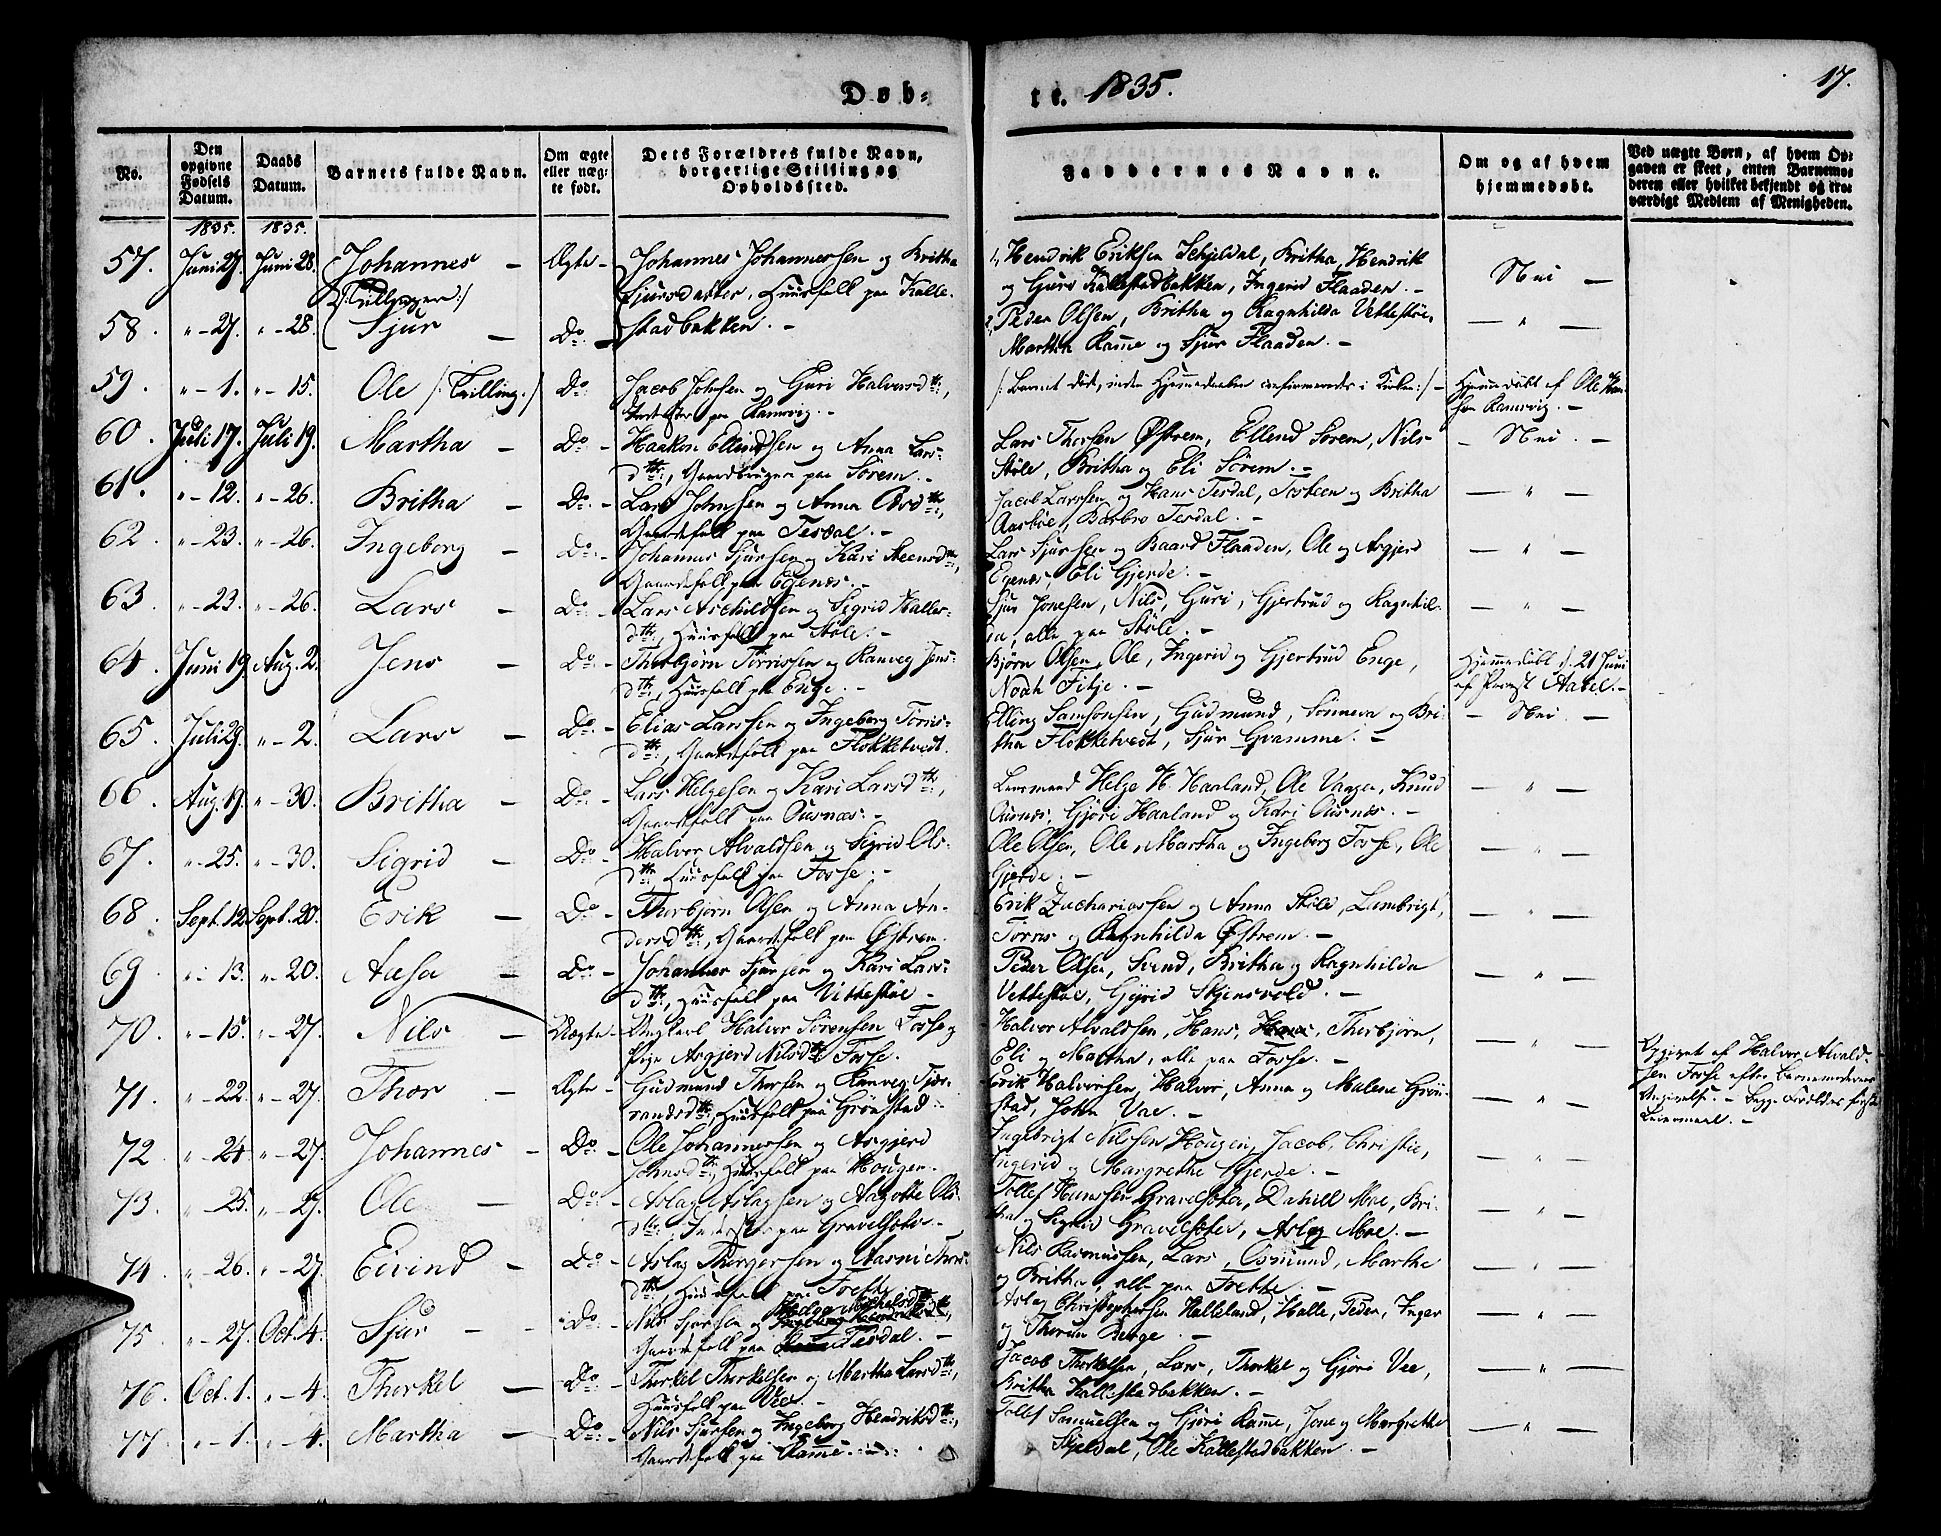 Døb-
te. 1835.
17.
No.
Den opgivne Fødsels Datum.
Daabs Datum.
Barnets fulde Navn.
Om ægte eller uægte født.
Dets Forældres fulde Navn, borgerlige Stilling og Opholdssted.
Faddernes Navne.
Om og af hvem hjemmedøbt.
Ved uægte Børn, af hvem Opgaven er skeet, enten Barnemoderen eller hvilket bekjendt og troværdigt Medlem af Menigheden.
1835. 1835.
57. Juni 27. Juni 28. Johannes – Ægte – Johannes Johannessen og Britha
Sjursdatter, Huusfolk paa Kalle-
stadbakken. –
1, Hendrik Eriksen Schjeldal, Britha, Hendrik
og Guro Kallestadbakken, Ingerid Flaaden. –
Nei –
/: Tvillinger :/
58. " – 27. " – 28. Sjur – Do
2, Peder Olsen, Britha og Ragnhilda Vettestøe,
Martha Ramme og Sjur Flaaden. –
– " –
59. " – 1. " – 15. Ole /: Tvilling :/ Do Jacob Johnsen og Guri Halvorsdtr,
Inderster paa Ramsvig. –
/: Barnet døde, inden Hjemmedaaben confirmeredes i Kirken :/ –
Hjemmedøbt af Ole
Ramsvig. –
60. Juli 17. Juli 19. Martha – Do – Haakon Ellendsen og Anna Lars-
dtr, Gaardbruger paa Sørem. –
Lars Thorsen Østrem, Ellend Sørem, Nils
Støle, Britha og Eli Sørem. –
– Nei. –
61. " – 12. " – 26. Britha – Do – Lars Johnsen og Anna
Gaardsfolk paa Tesdal. –
Jacob Larssen og Hans Tesdal, Torsteen og Britha
Aasbøe, Barbro Tesdal. –
– " –
62. " – 23. " – 26. Ingeborg – Do – Johannes Sjursen og Kari Steensdtr,
Gaardsfolk paa Egenæs. –
Lars Sjursen og Baard Flaaden, Ole og Asgjerd
Egenæs, Eli Gjerde. –
– " –
63. " – 23. " – 26. Lars – Do – Lars Aschildsen og Sigrid Halles-
dtr, Huusfolk paa Støle. –
Sjur Jonesen, Nils, Guri, Gjertrud og Ragnhil-
da, alle paa Støle. –
– " –
64. Juni 19. Aug. 2. Jens – Do – Thorbjørn Torrissen og Ranveg Jens-
dtr, Huusfolk paa Enge. –
Bjørn Olsen, Ole, Ingerid og Gjertrud Enge,
Noah Fitje. –
Hjemmedøbt d. 21 Juni
af Provst Aabel. –
65. Juli 29. " – 2. Lars – Do – Elias Larssen og Ingeborg Torris-
dtr, Gaardsfolk paa Flokketvedt.
Elling Samsonsen, Gudmund, Sønneva og Bri-
tha Flokketvedt, Sjur Gramme. –
– Nei –
66. Aug. 19. " – 30. Britha – Do – Lars Helgesen og Kari Larsdtr,
Gaardsfolk paa Ousnæs. –
Lensmand Helge H. Haaland, Ole Vaage, Knud
Ousnæs, Gjøri Haaland og Kari Ousnæs. –
– " –
67. " – 25. " – 30. Sigrid – Do – Halvor Alvaldsen og Sigrid Ols-
dtr, Huusfolk paa Fosse. –
Ole Olsen, Ole, Martha og Ingeborg Fosse, Ole
Gjerde. –
– " –
68. Sept. 12. Sept. 20. Erik – Do – Thorbjørn Olsen og Anna An-
dersdtr, Gaardsfolk paa Østrem.
Erik Zachariassen og Anna Støle, Lambrigt,
Torris og Ragnhilda Østrem. –
– " –
69. " – 13. " – 20. Aasa – Do – Johannes Sjursen og Kari Lars-
dtr, Huusfolk paa Vettestøe –
Peder Olsen, Svend, Britha og Ragnhilda
Vettestøe, Gjørid Skjensvold. –
– " –
70. " – 15. " – 27. Nils – Uægte – Ungkarl Halvor Sørensen Fosse og
Pige Asgjerd Nilsdtr Fosse.
Halvor Alvaldsen, Hans, Thorbjørn,
Eli og Martha, alle paa Fosse. –
– " –
Opgivet af Halvor Alvald-
sen Fosse efter Barnemoderens
Angivelse. – Begge Forældres første
Leiermaal. –
71. " – 22. " – 27. Thor – Ægte – Gudmund Thorsen og Ranveg Tjø-
randsdtr, Huusfolk paa Grønstad –
Erik Halvorsen, Halvor, Anna og Malene Grøn-
stad, John Vae. –
– " –
72. " – 24. " – 27. Johannes – Do – Ole Johannessen og Asgjerd
Johnsdtr, Huusfolk paa Hougen –
Ingebrigt Nilssen Hougen, Jacob, Christie,
Ingerid og Margrethe Gjerde. –
– " –
73. " – 25. " – 27. Ole – Do – Aslag Aslagsen og Aagotte Ols-
dtr, Inderster paa Gravelsæter –
Tollef Hanssen Gravelsæter, Moe, Bri-
tha og Sigrid Gravelsæter, Aslag Moe. –
– " –
74. " – 26. " – 27. Eivind – Do – Aslag Thorgersen og Aasni Thors-
dtr, Huusfolk paa Frette. –
Nils Rasmussen, Lars, Osmund, Martha
og Britha, alle paa Frette. –
– " –
75. " – 27. Oct. 4. Sjur – Do – Nils Sjursen og Ingeborg Hendriksdtr,
Gaardsfolk paa Tesdal. –
Aslag Christophersen Halleland, Halle, Peder, Inger
og Thorun Berge. –
"
76. Oct. 1. " – 4. Thorkel – Do – Thorkel Thorkelsen og Martha Larsdtr,
Huusfolk paa Vee. –
Jacob Thorkelsen, Lars, Thorkel og Gjøri Vee,
Britha Kallestadbakken. –
– " –
77. " – 1. " – 4. Martha – Do – Nils Sjursen og Ingeborg Hendriksdtr,
Gaardsfolk paa Ramme. –
Tollef Samuelsen og Gjøri Ramme, Jone og Margrethe
Skjeldal, Ole Kallestadbakken. –
– " –